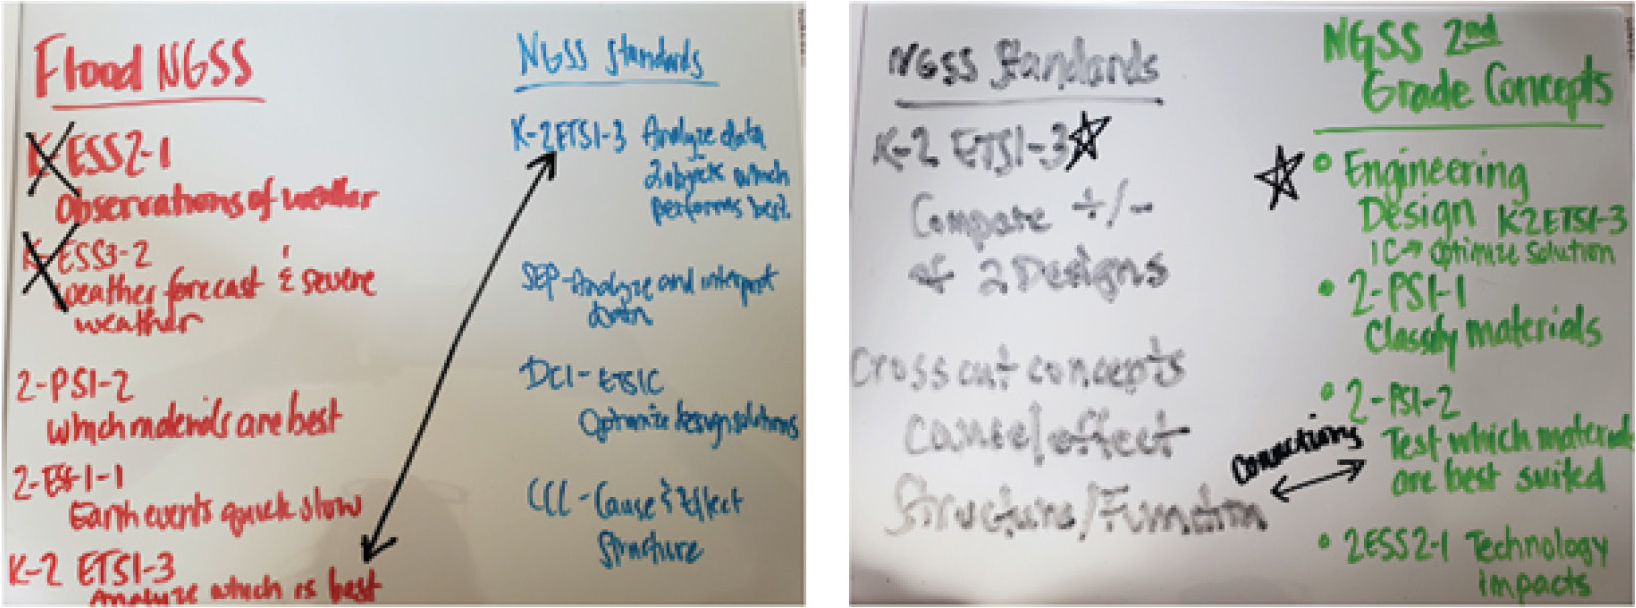 Flood NGSS
K-ESS2-1
Observations of weather
K-ESS3-2
Weather forecast & severe
weather
2-PS1-2
which materials are best
2-ESS1-1
Earth events quick slow
K-2 ETS1-3
Analyze which is best
NGSS Standards
K-2ETS1-3 Analyze data
2 objects which
performs best.
SEP-Analyze and interpret
data
DCI-ETS1C
Optimize design solutions
CCC-Cause & Effect
Structure
NGSS Standards
K-2 ETS1-3
Compare +/-
of 2 Designs
Cross cut concepts
Cause/effect
Structures/Function
Connections
NGSS 2nd
Grade Concepts
Engineering
Design K2ETS1-3
1C→Optimize solution
2-PS1-1
Classify materials
2-PS1-2
Test which materials
are best suited
2ESS2-1 Technology
impacts